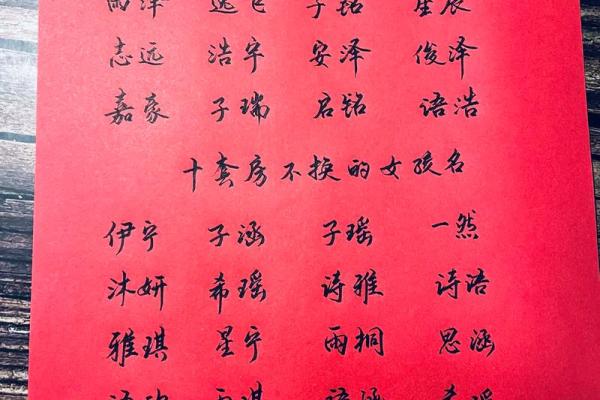 雨泽 逸飞 子铭 星辰
志远 浩宇 安泽 俊泽
嘉豪 子瑞 启铭 语浩
十套房不换的女孩名
伊宁 子涵 子瑶 一然
沐妍 希瑶 诗雅 诗涵
雅琪 星宁 雨桐 思涵